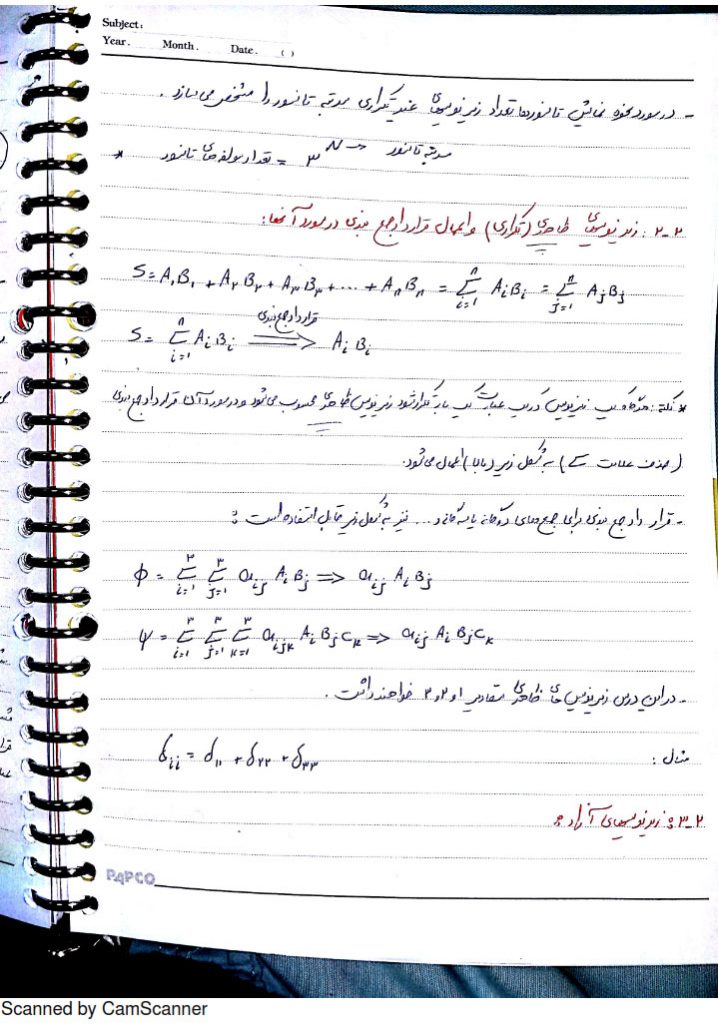 Subject:
Year. Month. Date. ( )
- در مورد نحوه نمایش تانسورها تعداد زیرنویسهای غیرتکراری مرتبه تانسور را مشخص می‌سازد.
* تعداد مولفه‌های تانسور = ۳^N → مرتبه تانسور
۲-۲: زیرنویسهای ظاهری (تکراری) و اعمال قرارداد جمع بندی در مورد آنها:
S = A₁B₁ + A₂B₂ + A₃B₃ + ... + AₙBₙ = Σ_{i=1}^{n} AᵢBᵢ = Σ_{j=1}^{n} AⱼBⱼ
S = Σ_{i=1}^{n} AᵢBᵢ ⟹ (قرارداد جمع بندی) AᵢBᵢ
* نکته: هرگاه یک زیرنویس در یک عبارت یک بار تکرار شود زیرنویس ظاهری محسوب می‌شود و در مورد آن قرارداد جمع بندی
(حذف علامت Σ) به شکل زیر (بالا) اعمال می‌شود.
- قرارداد جمع بندی برای جمع‌های دوگانه یا سه‌گانه و ... نیز به شکل زیر قابل استفاده است:
φ = Σ_{i=1}^{۳} Σ_{j=1}^{۳} a_{ij} A_i B_j ⟹ a_{ij} A_i B_j
ψ = Σ_{i=1}^{۳} Σ_{j=1}^{۳} Σ_{k=1}^{۳} a_{ijk} A_i B_j C_k ⟹ a_{ij} A_i B_j C_k
- در این درس زیرنویس های ظاهری مقادیر ۱ و ۲ و ۳ خواهند داشت.
مثال: δ_{ii} = δ_{۱۱} + δ_{۲۲} + δ_{۳۳}
۲-۳: زیرنویسهای آزاد:
PAPCO
Scanned by CamScanner